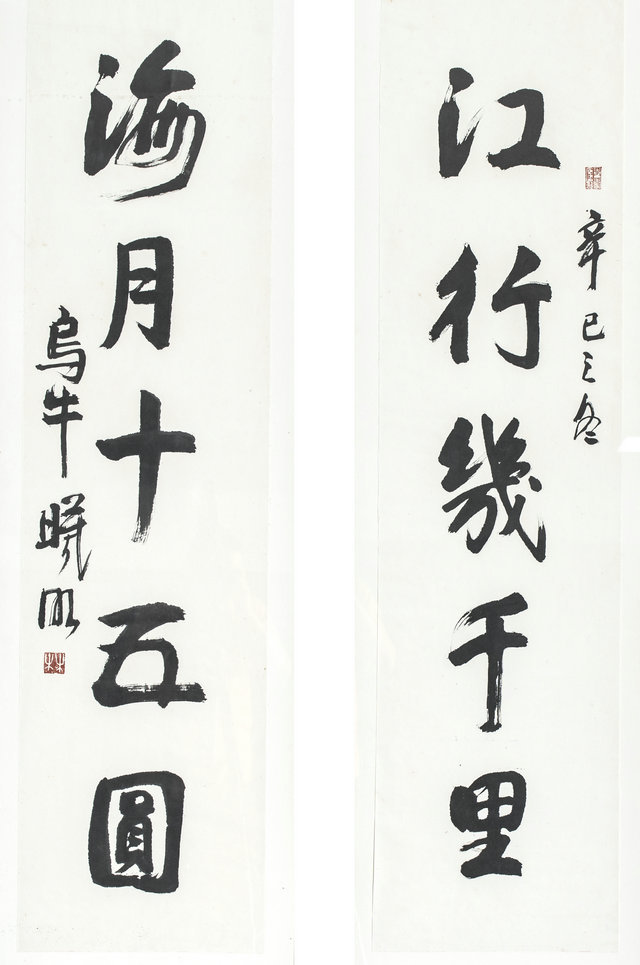 江行幾千里
辛巳之冬
海月十五圓
烏牛曉明